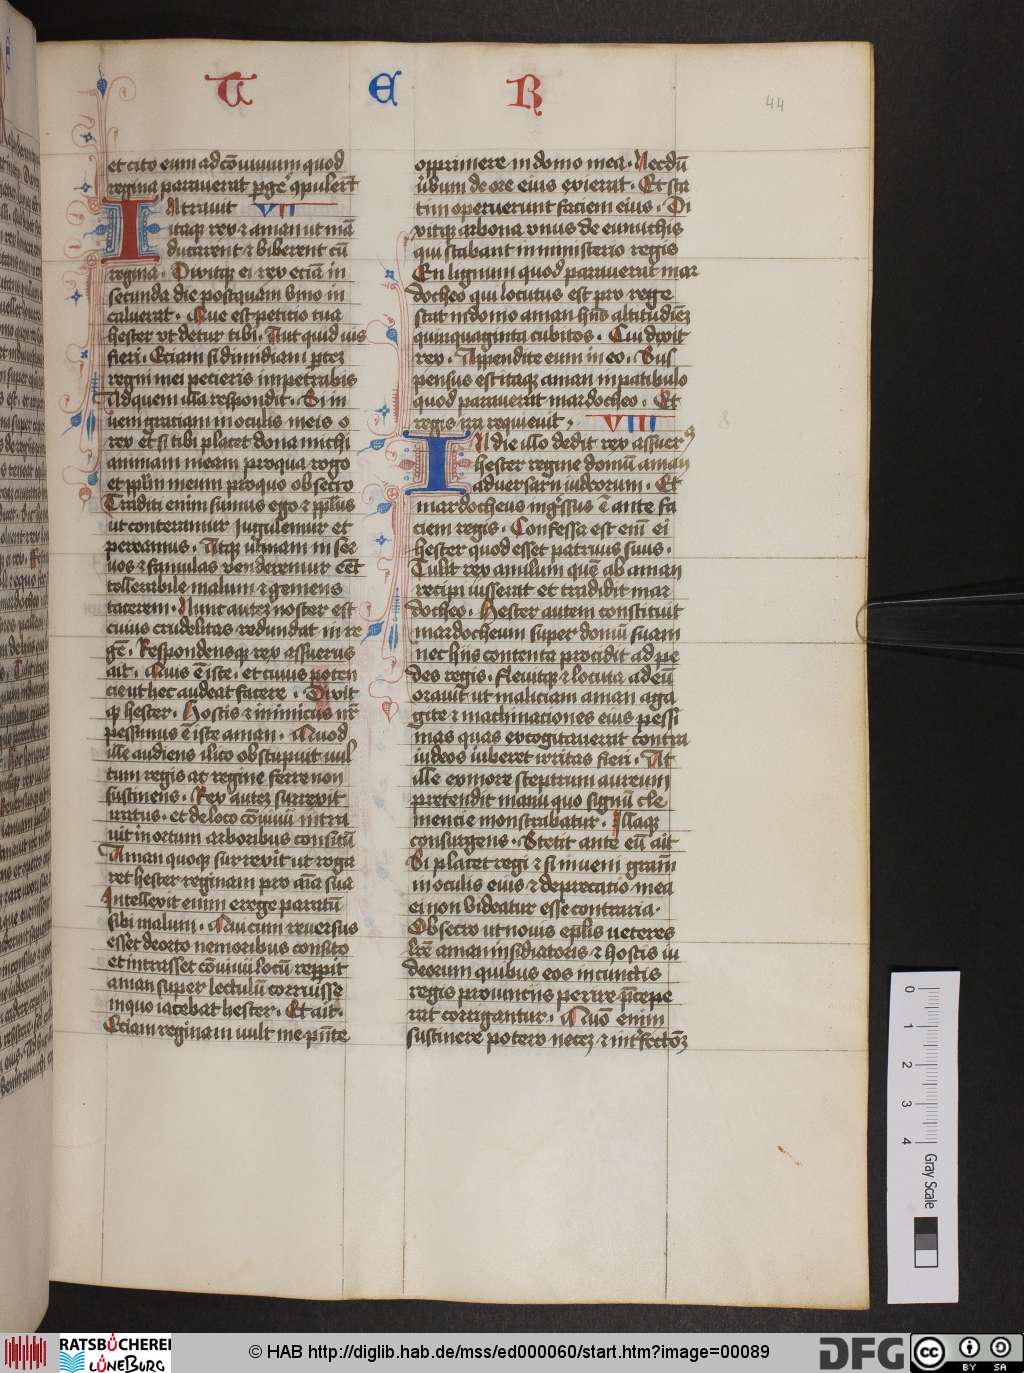 T E R
44
et cito eum ad cōuiuium quod
regina parauerat pgē ꝯpulerūt
Ntrauit VII
itaqꝫ rex ⁊ aman ut mā
ducarent ⁊ biberent cū
regina. Dixitqꝫ ei rex eciā in
secunda die postquam vino in
caluerat. Que est peticio tua
hester vt detur tibi. Aut quid uis
fieri. Eciam si dimidiam ptem
regni mei pecieris impetrabis
Ad quem illa respondit. Si in
ueni graciam in oculis meis o
rex et si tibi placet dona michi
animam meam pro qua rogo
et pplm meum pro quo obsecro
Traditi enim sumus ego ⁊ pplus
ut conteramur iugulemur et
pereamus. Atqꝫ utinam in ser
uos ⁊ famulas venderemur eēt
tollerabile malum ⁊ gemens
tacerem. Nunc autem noster est
cuius crudelitas redundat in re
gē. Respondensqꝫ rex assuerus
ait. Quis ē iste. et cuius poten
cie ut hec audeat facere. Dixit
qꝫ hester. Hostis ⁊ inimicus nr̄
pessimus ē iste aman. Quod
ille audiens ilico obstupuit uul
tum regis ac regine ferre non
sustinens. Rex autem surrexit
iratus. et de loco cōuiuii intra
uit in ortum arboribus consitū
Aman quoqꝫ surrexit ut roga
ret hester reginam pro aīa sua
Intellexit enim a rege paratū
sibi malum. Qui cum reuersus
esset de orto nemoribus consito
et intrasset cōuiuii locū reppit
aman super lectulū corruisse
in quo iacebat hester. Et ait.
Eciam reginam uult me pn̄te
opprimere in domo mea. Necdū
ūbum de ore eius exierat. Et sta
tim operuerunt faciem eius. Di
xitqꝫ arbona vnus de eunuchis
qui stabant in ministerio regis
En lignum quod parauerat mar
docheo qui locutus est pro rege
stat in domo aman hn̄s altitudiēz
quinquaginta cubitos. Cui dixit
rex. Appendite eum in eo. Sus
pensus est itaqꝫ aman in patibulo
quod parauerat mardocheo. Et
regis ira requieuit, VIII
N die illo dedit rex assuerꝰ
8
hester regine domū aman
aduersarii iudeorum. Et
mardocheus ingr̄ssus ē ante fa
ciem regis. Confessa est enī ei
hester quod esset patruus suus.
Tulit rex anulum quē ab aman
recipi iusserat et tradidit mar
docheo. Hester autem constituit
mardocheum super domū suam
nec hiis contenta procidit ad pe
des regis. fleuitqꝫ ⁊ locuta ad eū
orauit ut maliciam aman aga
gite ⁊ machinaciones eius pessi
mas quas excogitauerat contra
iudeos iuberet irritas fieri. At
ille ex more sceptrum aureum
pretendit manu quo signū cle
mencie monstrabatur. Illaqꝫ
consurgens. Stetit ante eū ait
Si placet regi ⁊ si inueni grām
in oculis eius ⁊ deprecacio mea
ei non videatur esse contraria.
Obsecro ut nouis eplis ueteres
lrē aman insidiatoris ⁊ hostis iu
deorum quibus eos in cunctis
regis prouinciis perire p̄cepe
rat corrigantur. Quō enim
sustinere potero necem ⁊ int̄fectōem
0 1 2 3 4
Gray Scale
RATSBÜCHEREI
LÜNEBURG
© HAB http://diglib.hab.de/mss/ed000060/start.htm?image=00089
DFG
cc BY SA